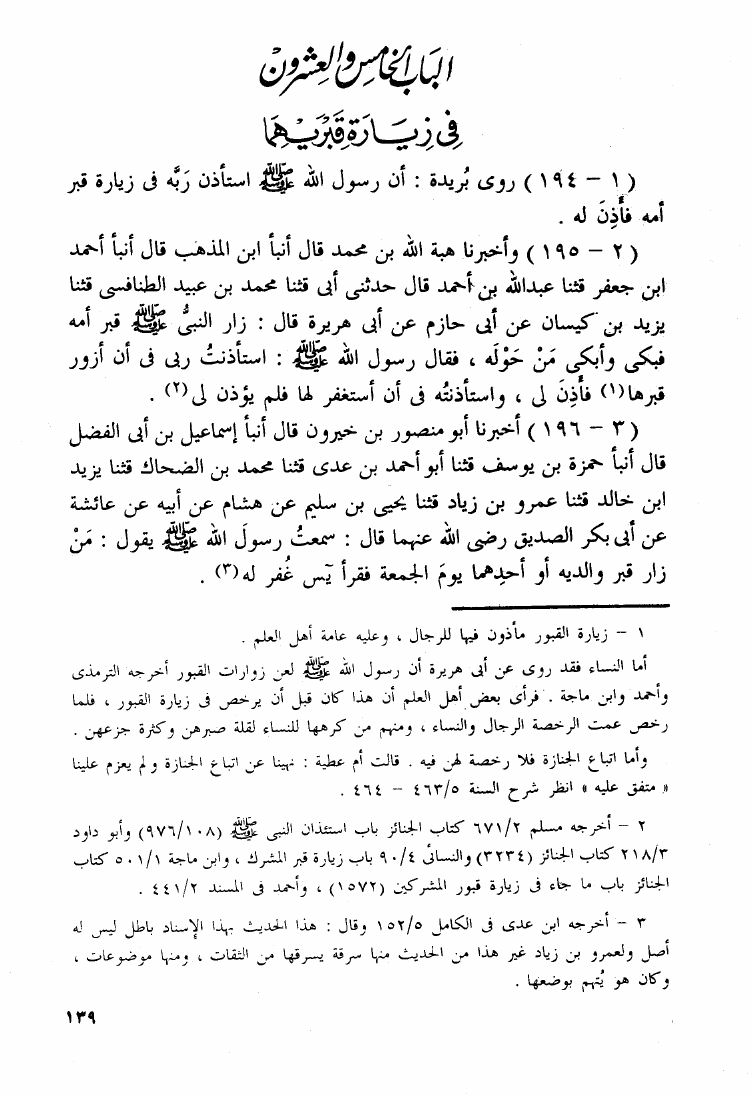 الباب الخامس والعشرون
في زيارة قبريهما
( ١ – ١٩٤ ) روى بُريدة : أن رسول الله ﷺ استأذن رَبَّه فى زيارة قبر
أمه فأُذِنَ له .
( ٢ – ١٩٥ ) وأخبرنا هبة الله بن محمد قال أنبأ ابن المذهب قال أنبأ أحمد
ابن جعفر قثنا عبدالله بن أحمد قال حدثنى أبى قثنا محمد بن عبيد الطنافسى قثنا
يزيد بن كيسان عن أبى حازم عن أبى هريرة قال : زار النبىُّ ﷺ قبر أمه
فبكى وأبكى مَنْ حَوْلَه ، فقال رسول الله ﷺ : استأذنتُ ربى فى أن أزور
قبرها(١) فأُذِنَ لى ، واستأذنتُه فى أن أستغفر لها فلم يؤذن لى(٢) .
( ٣ – ١٩٦ ) أخبرنا أبو منصور بن خيرون قال أنبأ إسماعيل بن أبى الفضل
قال أنبأ حمزة بن يوسف قثنا أبو أحمد بن عدى قثنا محمد بن الضحاك قثنا يزيد
ابن خالد قثنا عمرو بن زياد قثنا يحيى بن سليم عن هشام عن أبيه عن عائشة
عن أبى بكر الصديق رضى الله عنهما قال : سمعتُ رسولَ الله ﷺ يقول : مَنْ
زار قبر والديه أو أحدِهما يومَ الجمعة فقرأ يَس غُفر له(٣) .
١ – زيارة القبور مأذون فيها للرجال ، وعليه عامة أهل العلم .
أما النساء فقد روى عن أبى هريرة أن رسول الله ﷺ لعن زوارات القبور أخرجه الترمذى
وأحمد وابن ماجة . فرأى بعض أهل العلم أن هذا كان قبل أن يرخص فى زيارة القبور ، فلما
رخص عمت الرخصة الرجال والنساء ، ومنهم من كرهها للنساء لقلة صبرهن وكثرة جزعهن .
وأما اتباع الجنازة فلا رخصة لهن فيه . قالت أم عطية : نهينا عن اتباع الجنازة ولم يعزم علينا
« متفق عليه » انظر شرح السنة ٤٦٣/٥ – ٤٦٤ .
٢ – أخرجه مسلم ٦٧١/٢ كتاب الجنائز باب استئذان النبى ﷺ (٩٧٦/١٠٨) وأبو داود
٢١٨/٣ كتاب الجنائز (٣٢٣٤) والنسائى ٩٠/٤ باب زيارة قبر المشرك ، وابن ماجة ٥٠١/١ كتاب
الجنائز باب ما جاء فى زيارة قبور المشركين (١٥٧٢) ، وأحمد فى المسند ٤٤١/٢ .
٣ – أخرجه ابن عدى فى الكامل ١٥٢/٥ وقال : هذا الحديث بهذا الإسناد باطل ليس له
أصل ولعمرو بن زياد غير هذا من الحديث منها سرقة يسرقها من الثقات ، ومنها موضوعات ،
وكان هو يُتهم بوضعها .
١٣٩